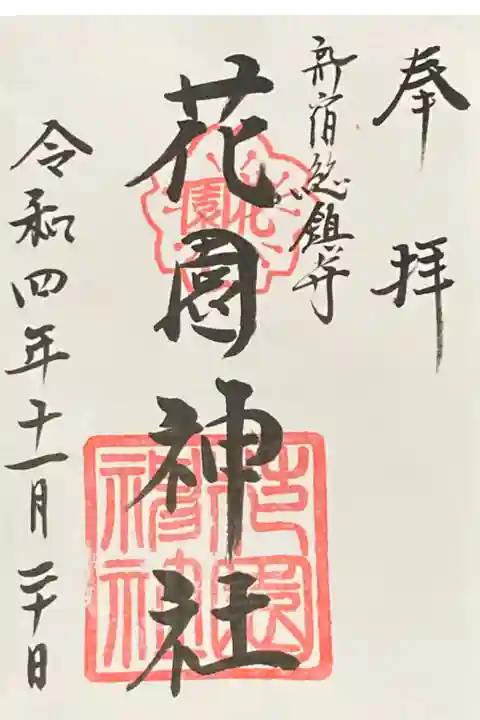 奉拝
新宿総鎮守
花園神社
令和四年十一月二十日
花園
花園神社